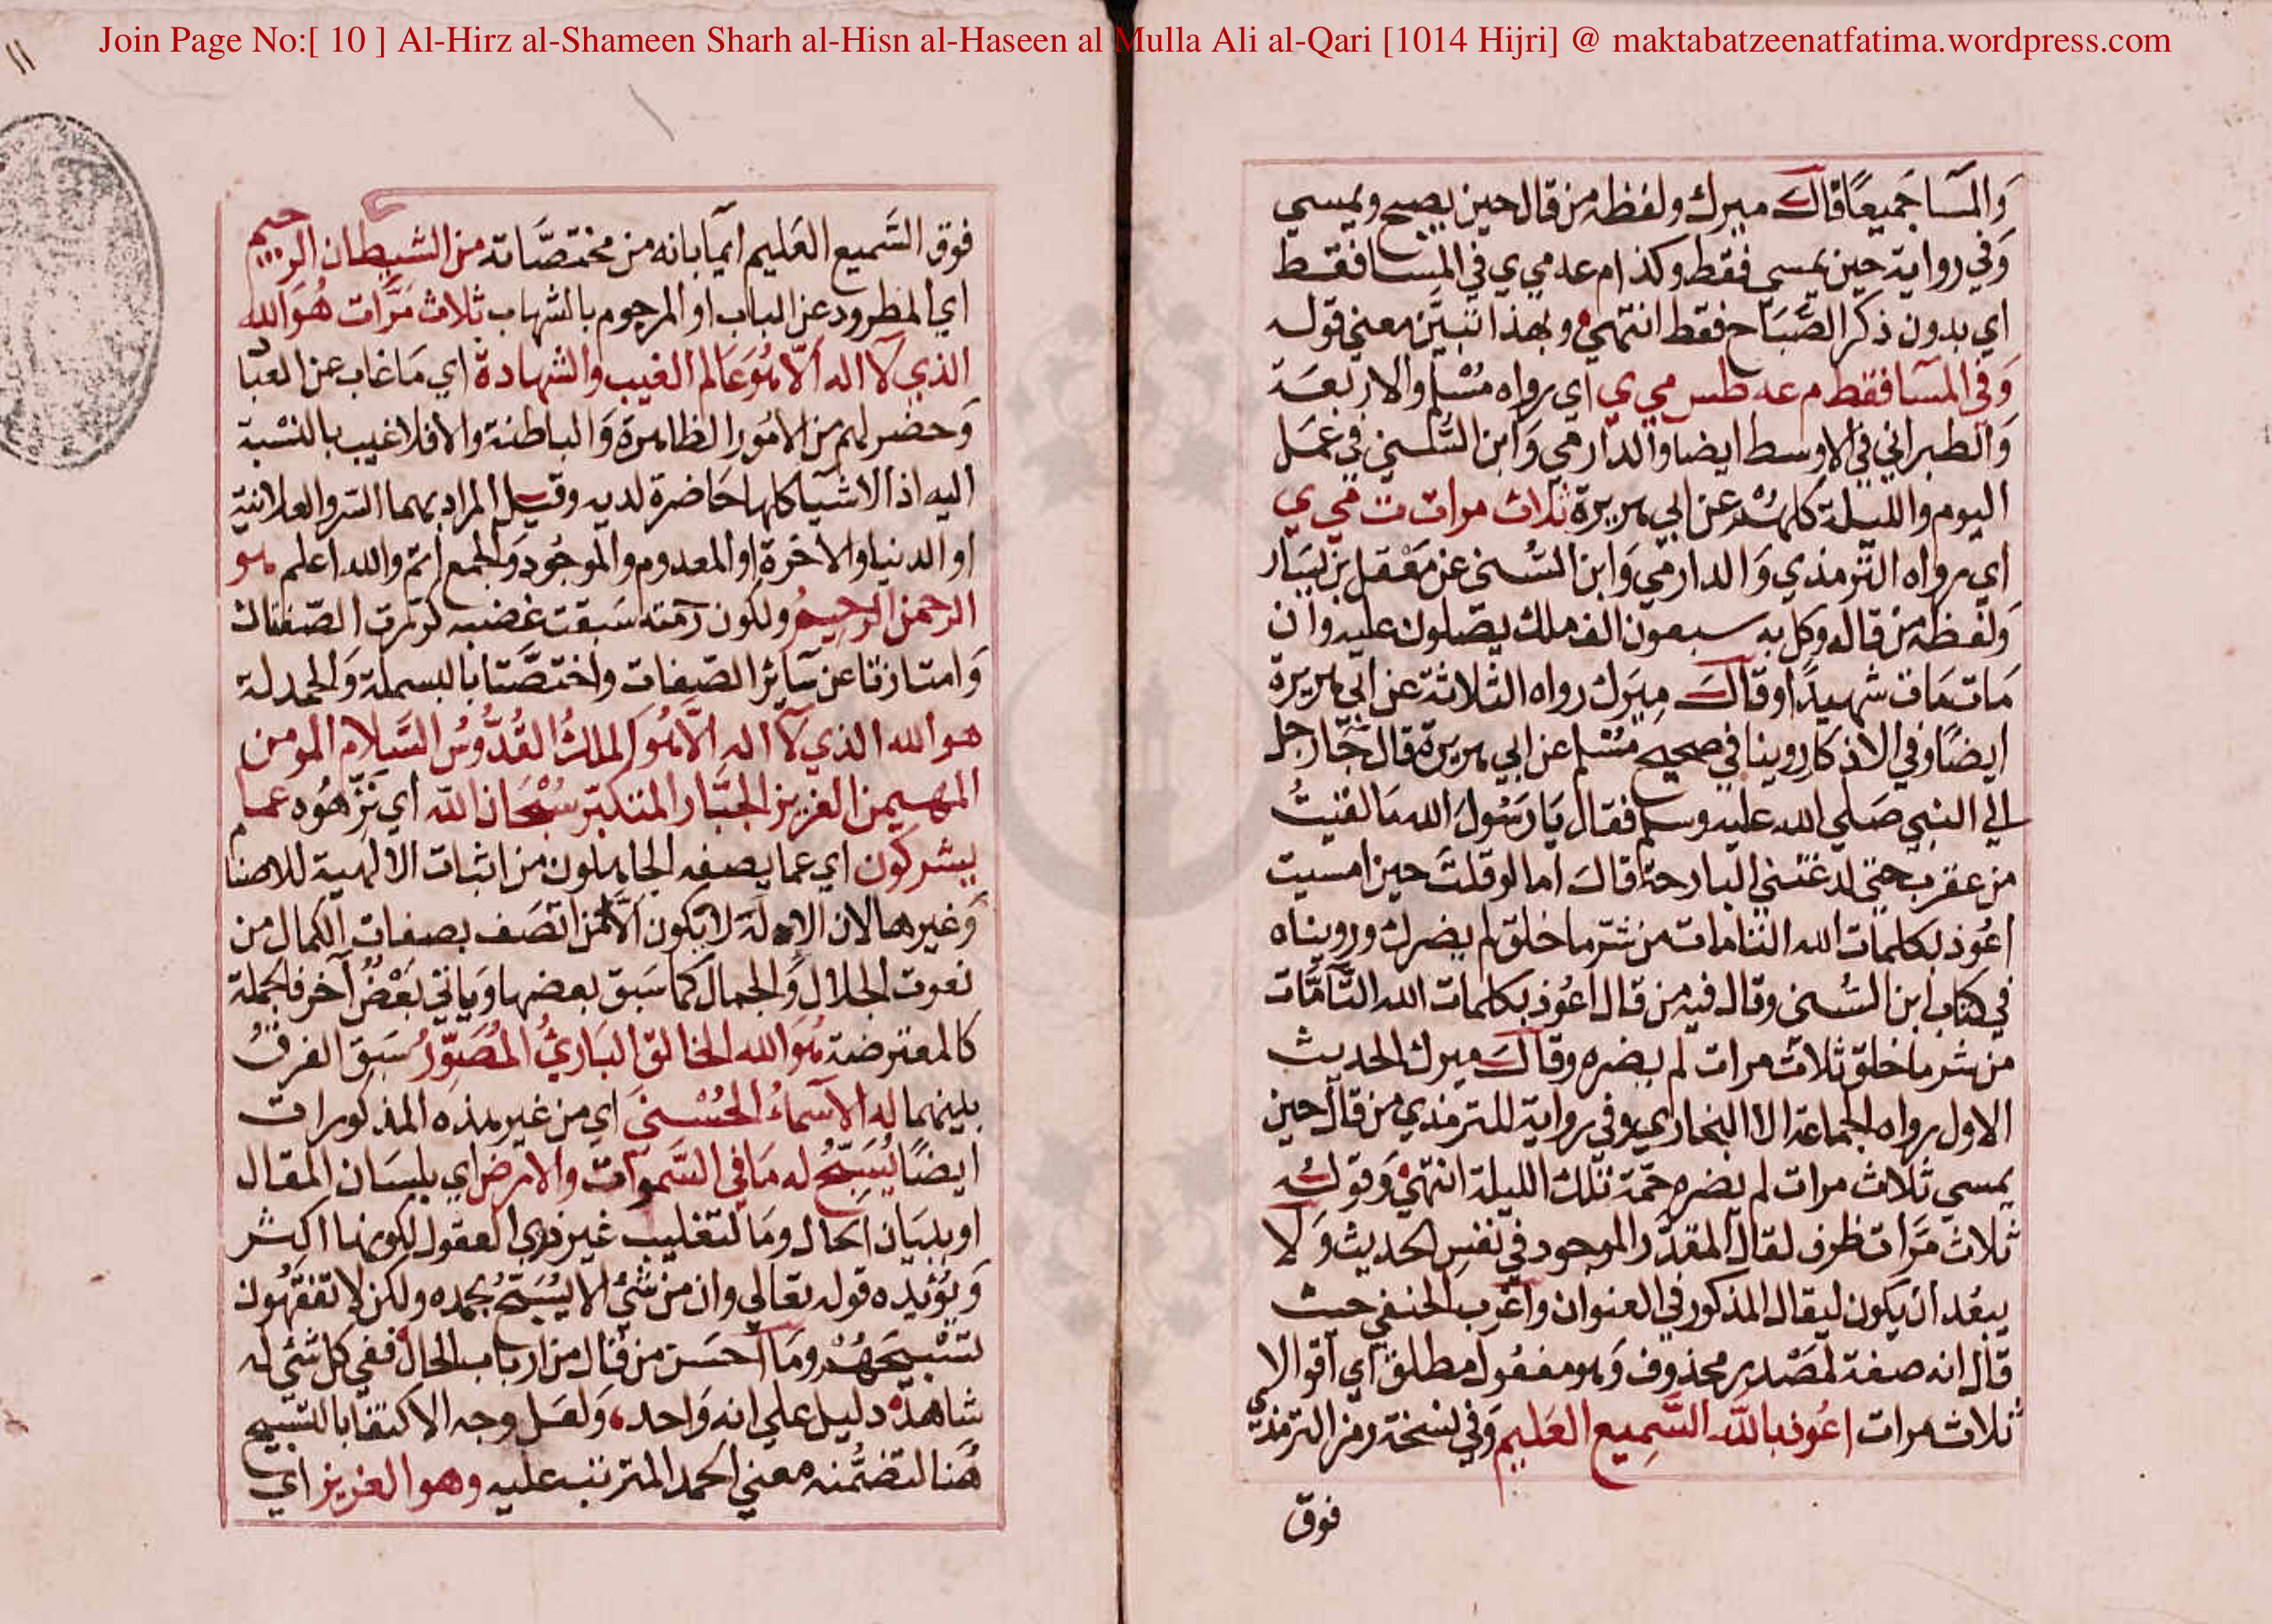 Join Page No:[ 10 ] Al-Hirz al-Shameen Sharh al-Hisn al-Haseen al Mulla Ali al-Qari [1014 Hijri] @ maktabatzeenatfatima.wordpress.com
وَالمسَآ جَميعًا قالَ ميرك ولفظه من قال حين يصبح ويمسي
وَفي رواية حين يمسي فقط وكذا م عه مي ي في المسَا فقط
اي بدون ذكر الصَّبَاح فقط انتهي وبهذا تبيَّن معني قوله
وَفي المسَآ فقط م عه طس مي ي اي رواه مُسْلم والاربَعَة
وَالطبراني في الاوسط ايضا والدارمي وَابن السُّني في عَمَل
اليوم والليلة كلهُمْ عن ابي هريرة ثلاث مرات ت مي ي
اي رواه الترمذي وَالدارمي وَابن السُّني عن مَعْقل بن يسَار
وَلفظه من قاله وكل به سبعون الف ملك يصَلون عليه وان
مَات مَات شهيدًا وقالَ ميرَك رواه الثلاثة عن ابي هريرة
ايضًا وفي الاذكار روينا في صحيح مُسْلم عن ابي هريرة قال جَآ رجل
الي النبي صَلي الله عليه وسلم فقال يَا رَسُولَ الله مَا لقيتُ
من عقرب حتي لدغتني البارحة قالَ اما لو قلتَ حين امسيت
اعُوذ بكلمات الله التامات من شرّ ما خلق لم يضرك ورويناه
في كتاب ابن السُّني وقال فيه من قال اعُوذ بكلمات الله التَّآمَّات
من شر ما خلق ثلاث مرات لم يضره وقالَ ميرك الحديث
الاول رواه الجماعة الا البخاري وفي رواية للترمذي من قال حين
يمسي ثلاث مرات لم يضره حُمَة تلك الليلة انتهي وَقولُه
ثلاث مَرَّات ظرف لقال المقدَّر الموجود في نفس الحديث وَلا
يبعُد ان يكون ليقال المذكور في العنوان واغرب الحنفي حيث
قال انه صفة لمصْدر محذوف وَهو مفعُول مطلق اي اقوالا
ثلاث مرات اعُوذ بالله السَّمِيع العَلِيم وَفي نسخة رمز الترمذي
فوق
فوق السَّميع العَليم ايمآ بانه من مختصَّاته من الشيطان الرجيم
اي المطرود عن الباب او المرجوم بالشهاب ثلاث مَرَّات هُوَ الله
الذي لآ اله الّا هُوَ عَالم الغيب والشهادة اي مَا غاب عن العبَاد
وَحضر لهم من الامُور الظاهرة وَالباطنة والا فلا غيب بالنسْبة
اليه اذ الاشيآ كلها حَاضرة لديه وقيل المراد بهما السّر والعلانية
او الدنيا والاخرة او المعدوم والموجُود وَالجمع اتم والله اعلم هو
الرحمن الرحيمُ ولكون رحمته سَبقت غضبه كررت الصّفتان
وَامتازتا عن سَآئر الصّفات واختصَّتا بالبسملة وَالحمدلة
هو الله الذي لآ اله الّا هُو الملكُ القُدُّوسُ السَّلام المومن
المهيمن العزيز الجبَّار المتكبّر سُبْحَان الله اي نَزِّهُوه عما
يشركون اي عما يصفه الجاهلون من اثبات الالهية للاصنام
وَغيرهما لان الاله لا يكون الّا من اتصَف بصفات الكمال من
نعوت الجلال وَالجمال كما سَبق بعضها وَياتي بَعْضٌ آخر فالجملة
كالمعترضة هُوَ الله الخالق البَاريُ المُصَوِّرُ سَبق الفرقُ
بينهما له الاسمَآءُ الحُسْني اي من غير هذه المذكورات
ايضًا يُسَبّحُ له مَا في السَّموات والارض اي بلسَان المقال
او ببيَان الحَال ومَا لتغليب غير ذوي العقول لكونها اكثر
وَيؤيّده قوله تعالي وان من شيْ الا يُسَبّحُ بحمده ولكن لا تفقهُون
تَسْبيحَهُمْ ومَا احسَن من قال من ارباب الحال ففي كل شيْ له
شاهد دليل علي انه وَاحد وَلعَل وجه الاكتفا بالتسبيح
هُنا لتضمُّنه معني الحمد المترتب عليه وهو العزيز اي